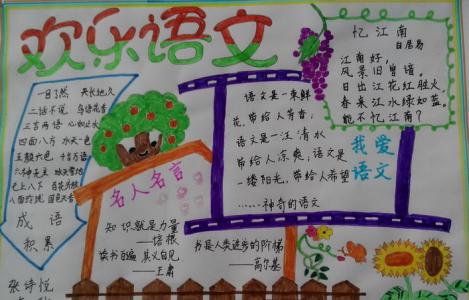 欢乐语文
一目了然 天长地久
二话不说 鸟语花香
三言两语 心如止水
四面八方 水天一色
五颜六色
六神无主 冰天雪地
七上八下 百花齐放
八面玲珑 国色天香
成语
积累
张诗悦
名人名言
知识就是力量
——培根
读书百遍 其义自见
——王肃
语文是一束鲜
花,带给人芳香,
语文是一汪清水
带给人凉爽,语文是
一缕阳光,带给人希望
……神奇的语文
书是人类进步的阶梯
——高尔基
忆江南
白居易
江南好,
风景旧曾谙。
日出江花红胜火
春来江水绿如蓝,
能不忆江南?
我爱
语文